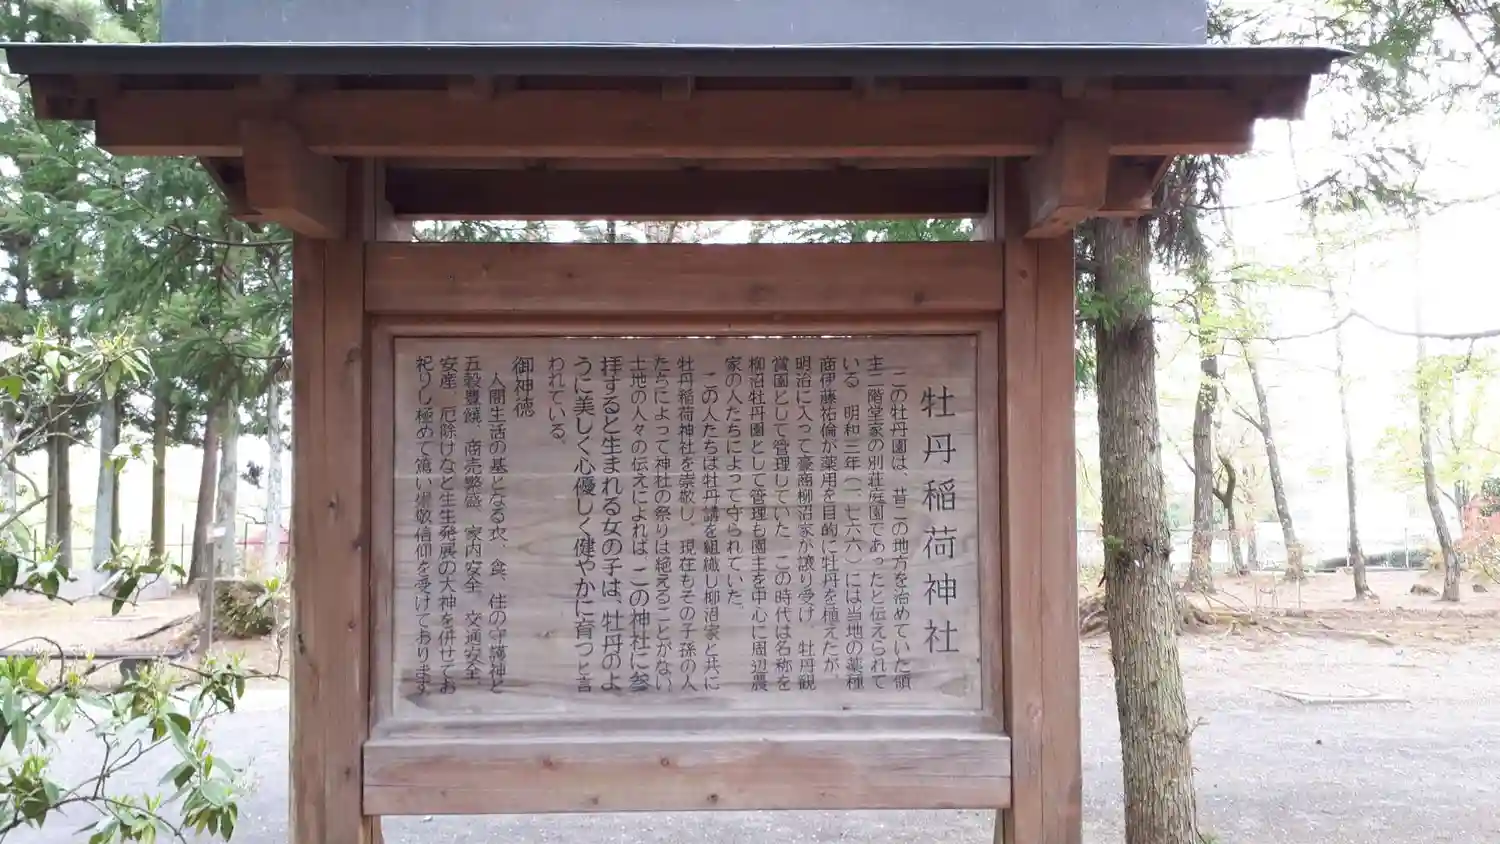 牡丹稲荷神社
この牡丹園は、昔この地方を治めていた領
主二階堂家の別荘庭園であったと伝えられて
いる。明和三年(一、七六六)には当地の薬種
商伊藤祐倫が薬用を目的に牡丹を植えたが、
明治に入って豪商柳沼家が譲り受け、牡丹観
賞園として管理していた。この時代は名称を
柳沼牡丹園として管理も園主を中心に周辺農
家の人たちによって守られていた。
この人たちは牡丹講を組織し柳沼家と共に
牡丹稲荷神社を崇敬し、現在もその子孫の人
たちによって神社の祭りは絶えることがない。
土地の人々の伝えによれば、この神社に参
拝すると生まれる女の子は、牡丹のよ
うに美しく心優しく健やかに育つと言
われている。
御神徳
人間生活の基となる衣、食、住の守護神と
五穀豊饒、商売繁盛、家内安全、交通安全、
安産、厄除けなど生生発展の大神を併せてお
祀りし極めて篤い崇敬信仰を受けております